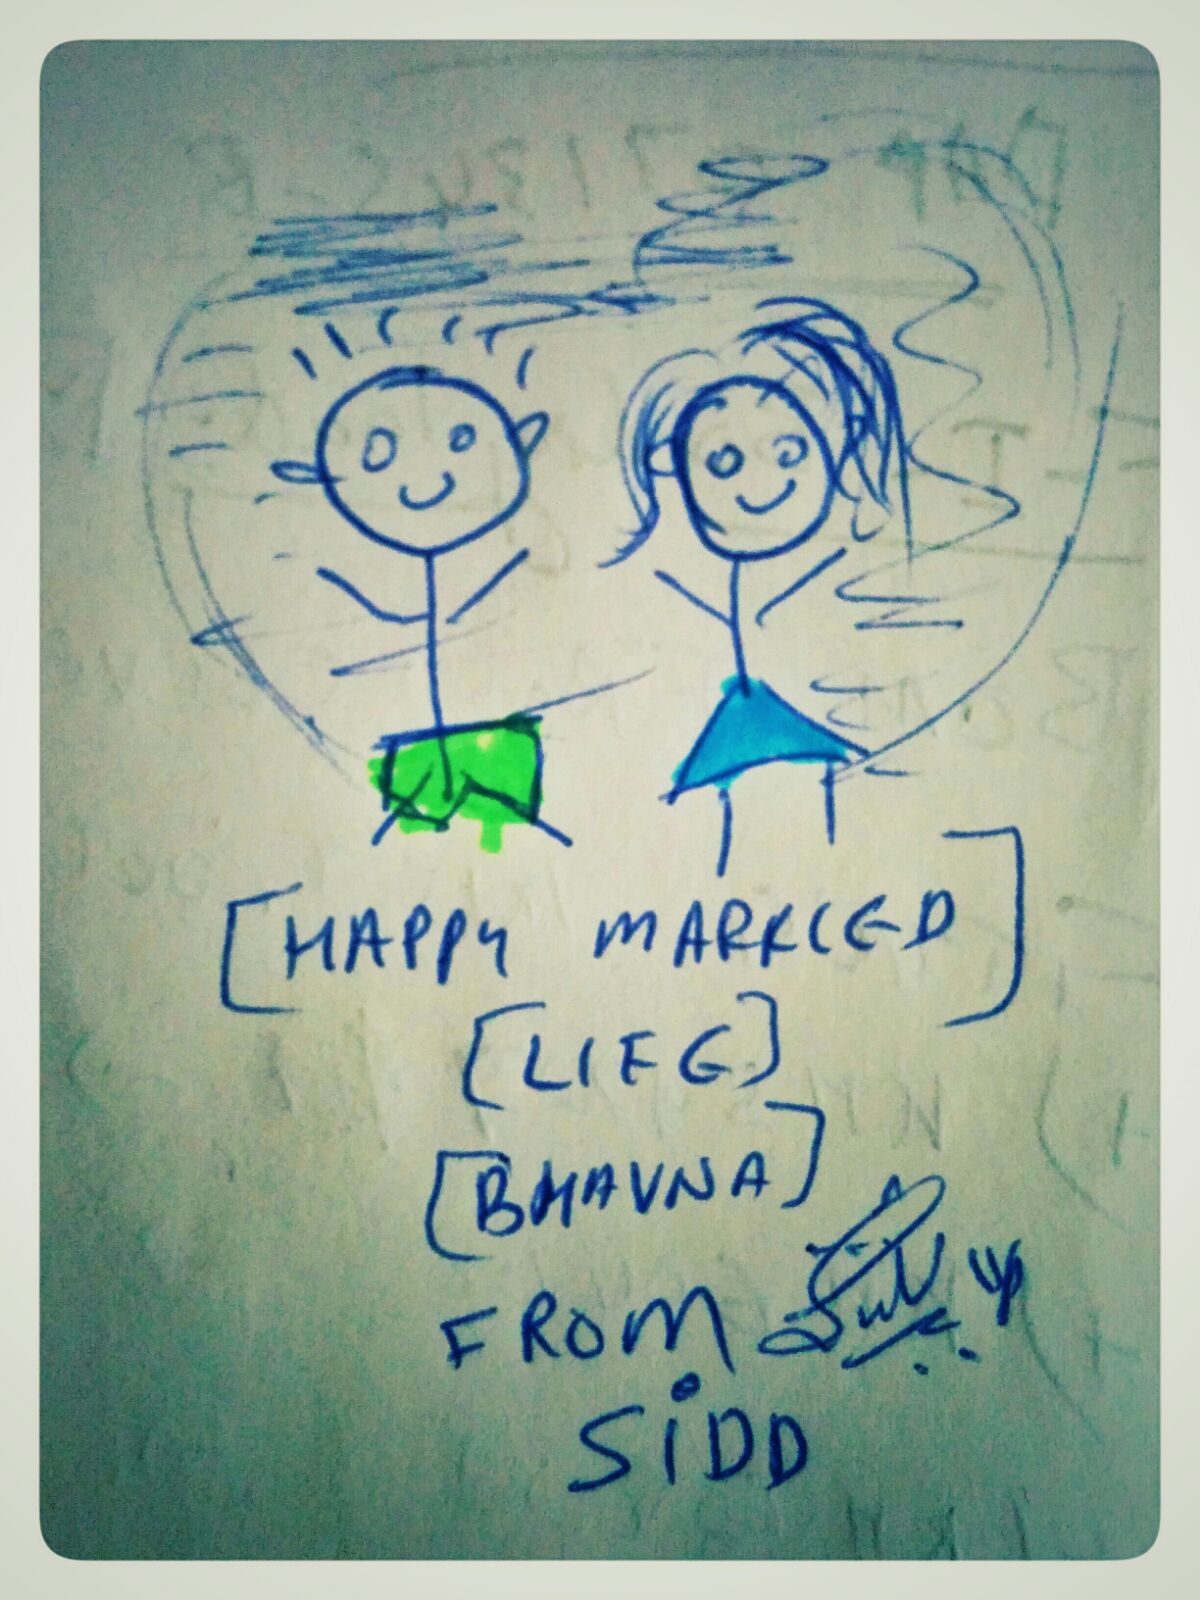 [HAPPY MARRIED]
[LIFE]
[BHAVNA]
FROM
SiDD